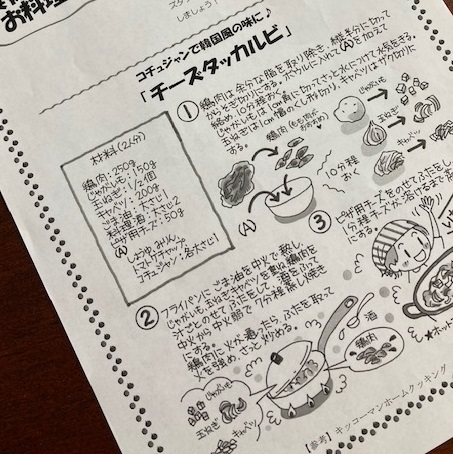 お料理
しましょう！
コチュジャンで韓国風の味に♪
「チーズタッカルビ」
材料(2人分)
鶏肉：250g
じゃがいも：150g
玉ねぎ：1/2個
キャベツ：200g
ごま油：大さじ1
料理酒：大さじ2
ピザ用チーズ：50g
Ⓐ
しょうゆ、みりん、
トマトケチャップ、
コチュジャン：各大さじ1
①
鶏肉は余分な脂を取り除き、縦半分に切って
からそぎ切りにする。ボウルに入れて(A)を加えて
絡め、10分程おく。
じゃがいもは1cm角に切ってさっと水につけて水気をきる。
玉ねぎは1cm幅のくし形切り、キャベツはザク切りに
する。
鶏肉
じゃがいも
玉ねぎ
キャベツ
(A)
10分程
おく
②
フライパンにごま油を中火で熱し、
じゃがいも、玉ねぎ、キャベツを重ね、鶏肉を
汁ごとのせて
中火から中火弱で7分程蒸し焼き
にする。
鶏肉に火が通ったら、ふたを取って
火を強め、さっと炒める。
酒
鶏肉
じゃがいも
玉ねぎ
キャベツ
③
ピザ用チーズをのせてふたをし、
1分程チーズが溶けるまで
にする。
★ホット
【参考】キッコーマンホームクッキング